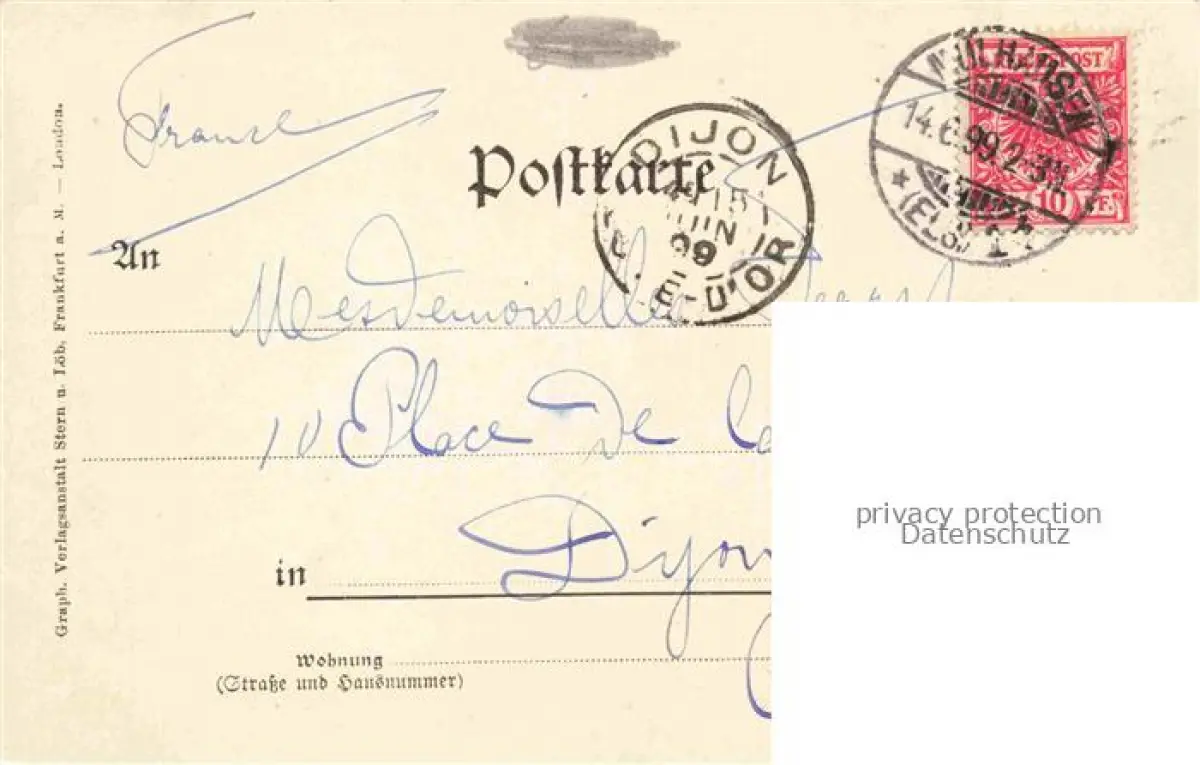 France
Postkarte
DIJON
15
JUIN
99
E-D'OR
MÜLHAUSEN
14.6.99.2-3N.
* (ELS.) 1
REICHSPOST
10
An
Mesdemoiselles
10 Place De la
in Dijon
Wohnung
(Straße und Hausnummer)
Graph. Verlagsanstalt Stern u. Löb, Frankfurt a. M. — London.
privacy protection
Datenschutz